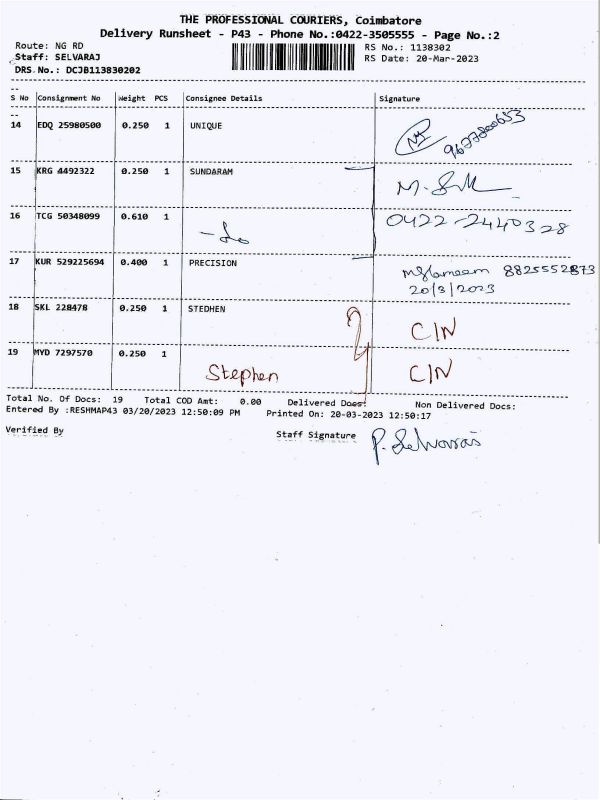 THE PROFESSIONAL COURIERS, Coimbatore
Delivery Runsheet - P43 - Phone No.:0422-3505555 - Page No.:2
Route: NG RD
RS No.: 1138302
Staff: SELVARAJ
RS Date: 20-Mar-2023
DRS No.: DCJB113830202
S No Consignment No Weight PCS Consignee Details Signature
14 EDQ 25980500 0.250 1 UNIQUE
9677800653
15 KRG 4492322 0.250 1 SUNDARAM
16 TCG 50348099 0.610 1 0422-2440328
17 KUR 529225694 0.400 1 PRECISION
8825552873
20/3/2023
18 SKL 228478 0.250 1 STEDHEN C/N
19 MYD 7297570 0.250 1
Stephen C/N
Total No. Of Docs: 19 Total COD Amt: 0.00 Delivered Docs: Non Delivered Docs:
Entered By :RESHMAP43 03/20/2023 12:50:09 PM Printed On: 20-03-2023 12:50:17
Verified By Staff Signature P. Selvaraj